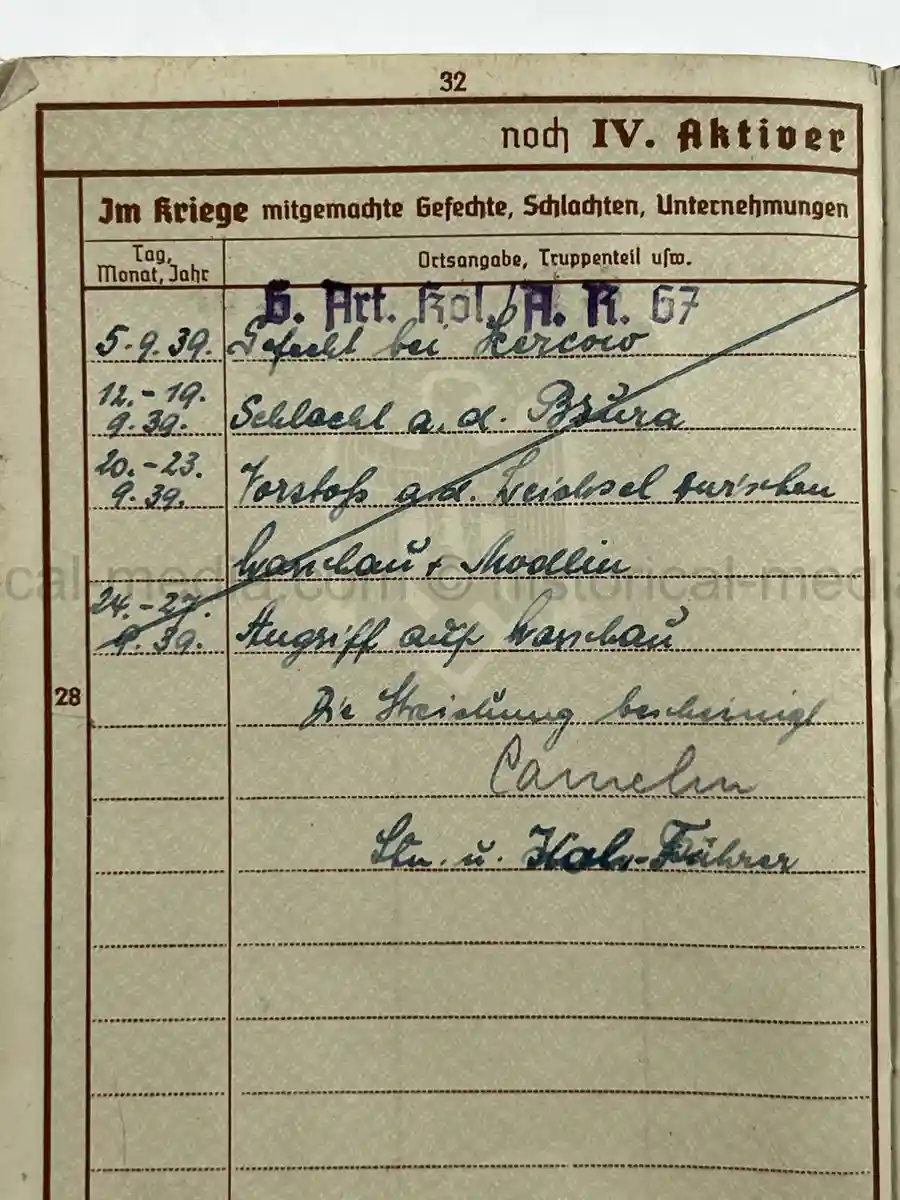 32
noch IV. Aktiver
Im Kriege mitgemachte Gefechte, Schlachten, Unternehmungen
Tag,
Monat, Jahr
Ortsangabe, Truppenteil usw.
Art. Kol./A. R. 67
5.9.39. Gefecht bei
12.-19.
9.39. Schlacht a. d. Bzura
20.-23.
9.39. Vorstoß a.d. Weichsel zwischen
Warschau + Modlin
24.-27.
9.39. Angriff auf Warschau
28
Die Streichung bescheinigt
Ltn. u. Kol.-Führer
historical-media.com © historical-media